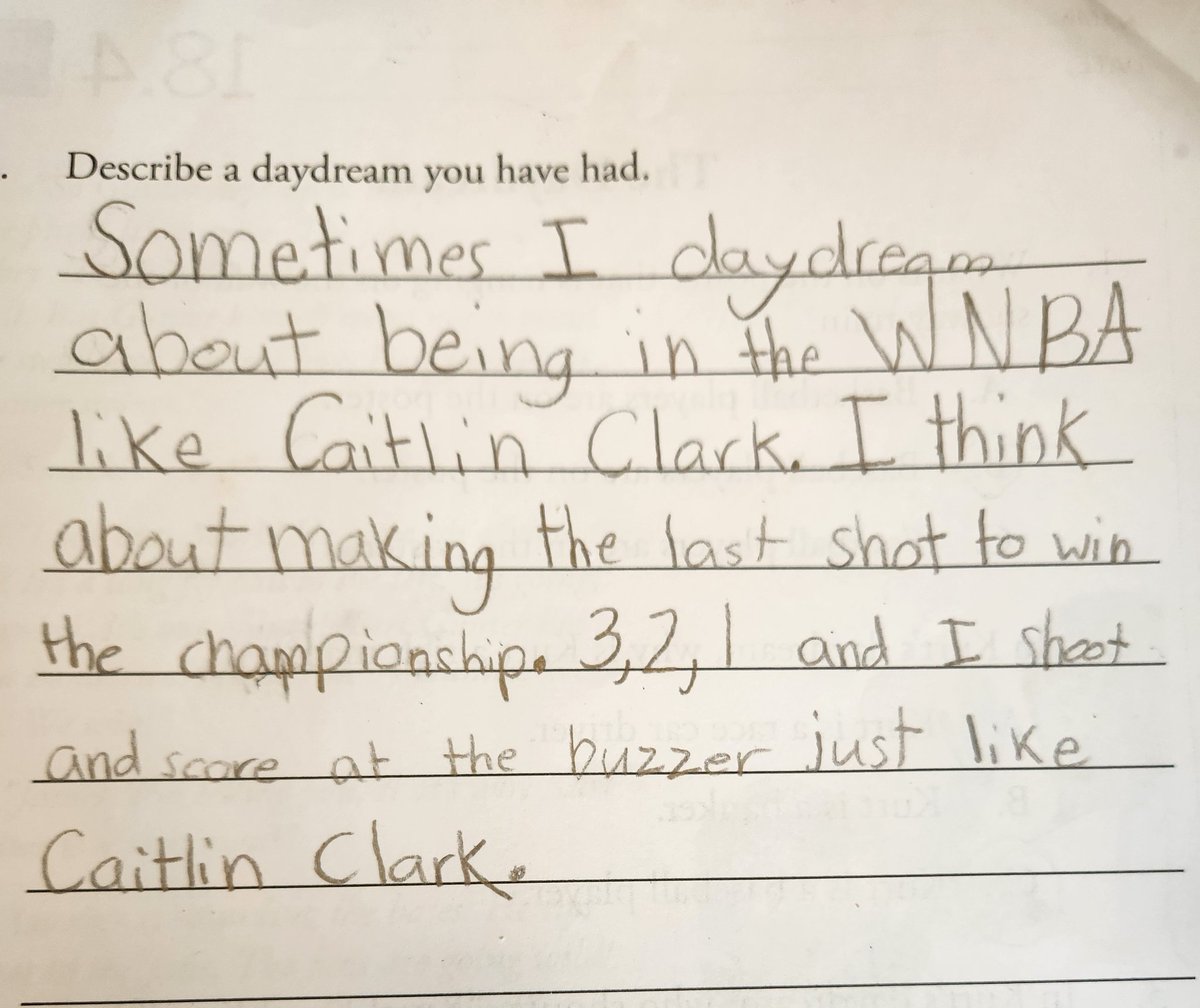 18.4
. Describe a daydream you have had.
Sometimes I daydream
about being in the WNBA
like Caitlin Clark. I think
about making the last shot to win
the championship. 3,2,1 and I shoot
and score at the buzzer just like
Caitlin Clark.